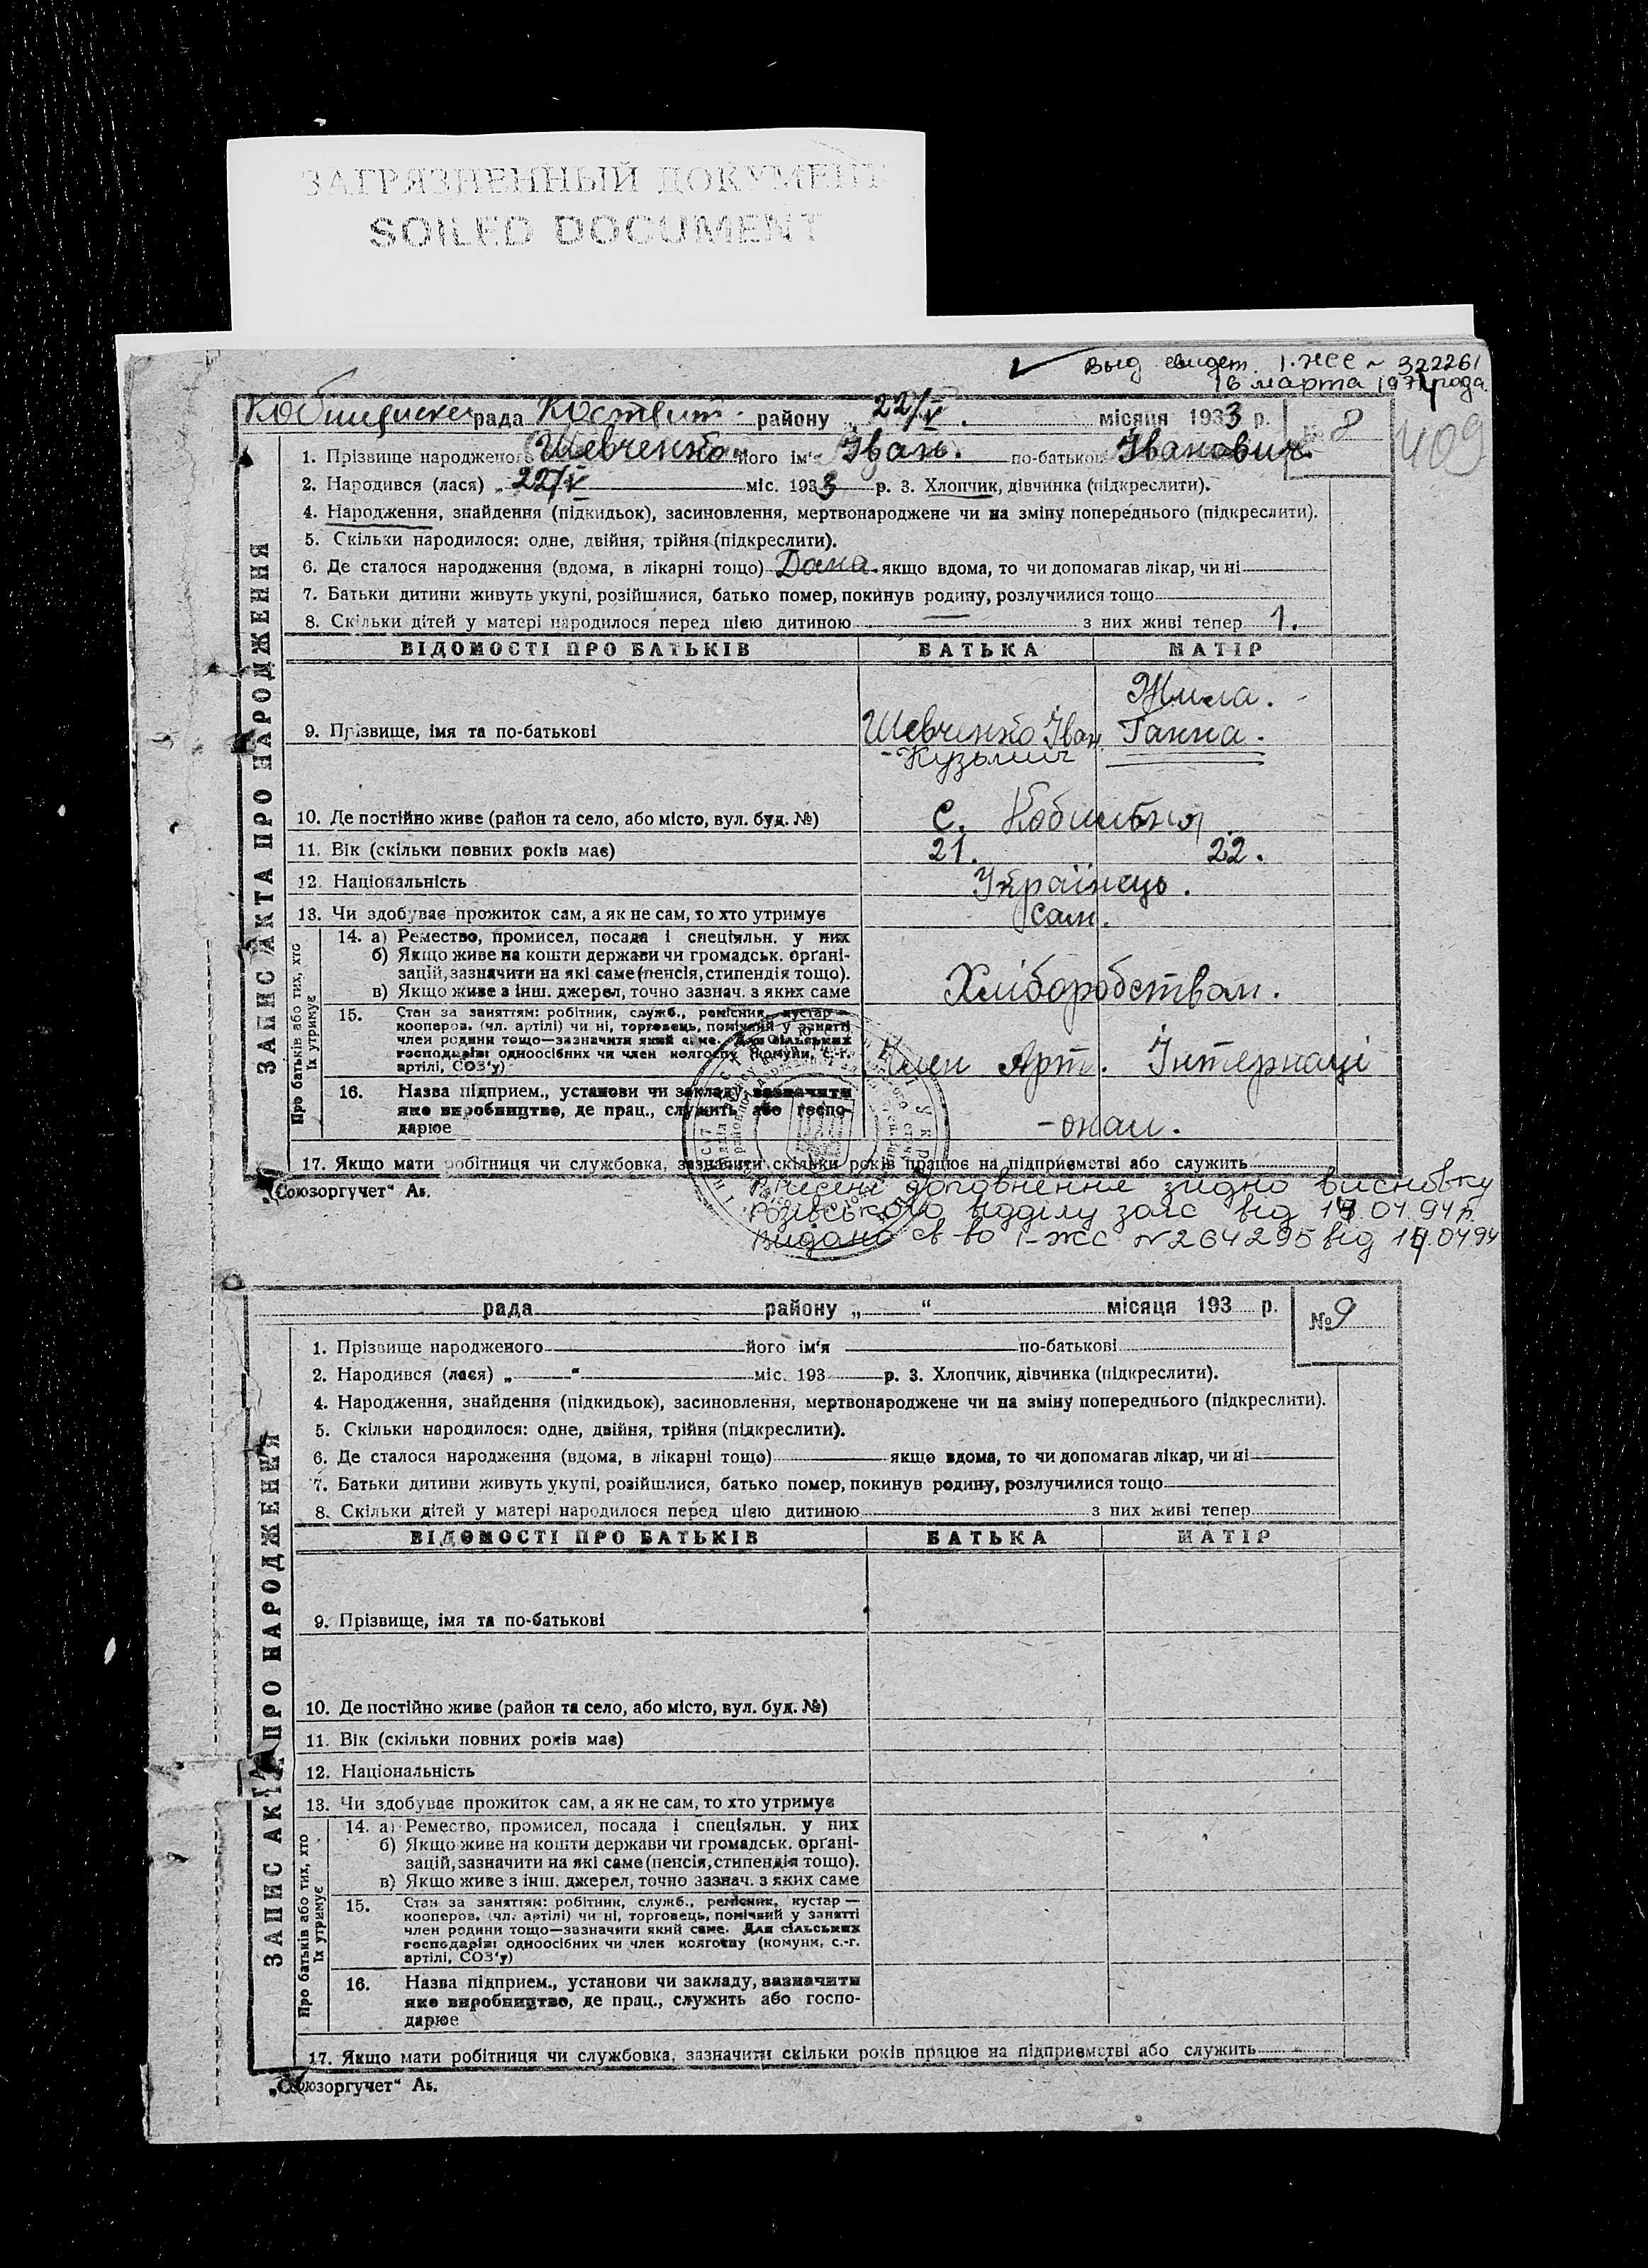 ЗАГРЯЗНЕННЫЙ ДОКУМЕНТ
SOILED DOCUMENT
выд свидет. I-ЖС № 322261
16 марта 1974 года
рада району 22/V. місяця 1933 р. № 8
409
1. Прізвище народженого Шевченко його ім'я Іван. по-батькові Іванович.
2. Народився (лася) „22/V міс. 1933 р. 3. Хлопчик, дівчинка (підкреслити).
4. Народження, знайдення (підкидьок), засиновлення, мертвонароджене чи на зміну попереднього (підкреслити).
5. Скільки народилося: одне, двійня, трійня (підкреслити).
6. Де сталося народження (вдома, в лікарні тощо) Дома. якщо вдома, то чи допомагав лікар, чи ні
7. Батьки дитини живуть укупі, розійшлися, батько помер, покинув родину, розлучилися тощо
8. Скільки дітей у матері народилося перед цією дитиною — з них живі тепер 1.
ЗАПИС АКТА ПРО НАРОДЖЕННЯ
ВІДОМОСТІ ПРО БАТЬКІВ БАТЬКА МАТІР
9. Прізвище, імя та по-батькові Шевченко Іван
-Кузьмич
Жила.
Ганна.
10. Де постійно живе (район та село, або місто, вул. буд. №) с.
11. Вік (скільки повних років має) 21. 22.
12. Національність Українець.
13. Чи здобуває прожиток сам, а як не сам, то хто утримує сам.
Про батьків або тих, хто
їх утримує
14. а) Ремество, промисел, посада і спеціяльн. у них
б) Якщо живе на кошти держави чи громадськ. органі-
зацій, зазначити на які саме (пенсія, стипендія тощо).
в) Якщо живе з інш. джерел, точно зазнач. з яких саме Хліборобством.
15. Стан за заняттям: робітник, служб., ремісник, кустар —
кооперов. (чл. артілі) чи ні, торговець, помічний у занятті
член родини тощо—зазначити який саме. Для сільських
господарів: одноосібних чи член колгоспу (комуни, с.-г.
артілі, СОЗ'у) Член Арт. Інтернаці
16. Назва підприєм., установи чи закладу, зазначити
яке виробництво, де прац., служить або госпо-
дарює
-онал.
17. Якщо мати робітниця чи службовка, зазначити скільки років працює на підприємстві або служить
„Союзоргучет“ А5.
Внесені доповнення згідно висновку
відділу загс від .04.94р.
Видано св-во I-ЖС №264295 від .04.94
рада району „ “ місяця 193 р. № 9
1. Прізвище народженого його ім'я по-батькові
2. Народився (лася) „ “ міс. 193 р. 3. Хлопчик, дівчинка (підкреслити).
4. Народження, знайдення (підкидьок), засиновлення, мертвонароджене чи на зміну попереднього (підкреслити).
5. Скільки народилося: одне, двійня, трійня (підкреслити).
6. Де сталося народження (вдома, в лікарні тощо) якщо вдома, то чи допомагав лікар, чи ні
7. Батьки дитини живуть укупі, розійшлися, батько помер, покинув родину, розлучилися тощо
8. Скільки дітей у матері народилося перед цією дитиною з них живі тепер
ЗАПИС АКТА ПРО НАРОДЖЕННЯ
ВІДОМОСТІ ПРО БАТЬКІВ БАТЬКА МАТІР
9. Прізвище, імя та по-батькові
10. Де постійно живе (район та село, або місто, вул. буд. №)
11. Вік (скільки повних років має)
12. Національність
13. Чи здобуває прожиток сам, а як не сам, то хто утримує
Про батьків або тих, хто
їх утримує
14. а) Ремество, промисел, посада і спеціяльн. у них
б) Якщо живе на кошти держави чи громадськ. органі-
зацій, зазначити на які саме (пенсія, стипендія тощо).
в) Якщо живе з інш. джерел, точно зазнач. з яких саме
15. Стан за заняттям: робітник, служб., ремісник, кустар —
кооперов. (чл. артілі) чи ні, торговець, помічний у занятті
член родини тощо—зазначити який саме. Для сільських
господарів: одноосібних чи член колгоспу (комуни, с.-г.
артілі, СОЗ'у)
16. Назва підприєм., установи чи закладу, зазначити
яке виробництво, де прац., служить або госпо-
дарює
17. Якщо мати робітниця чи службовка, зазначити скільки років працює на підприємстві або служить
„Союзоргучет“ А5.